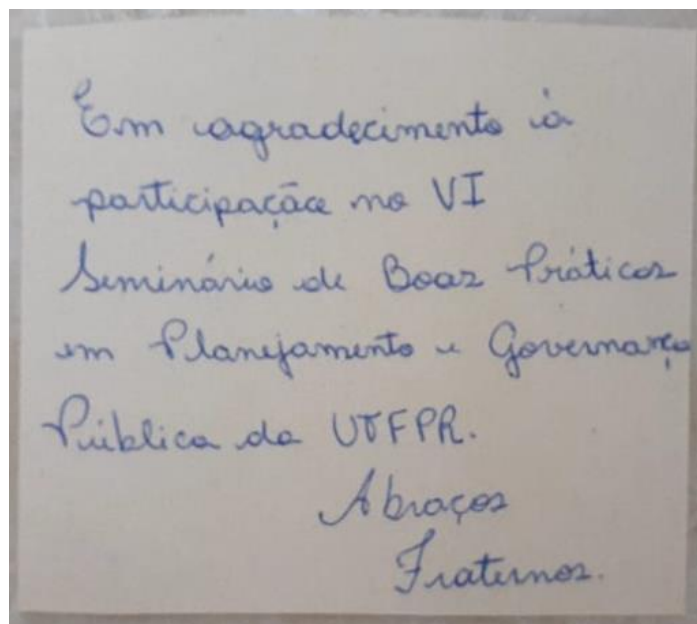 Em agradecimento à
participação no VI
Seminário de Boas Práticas
em Planejamento e Governança
Pública da UTFPR.
Abraços
Fraternos.